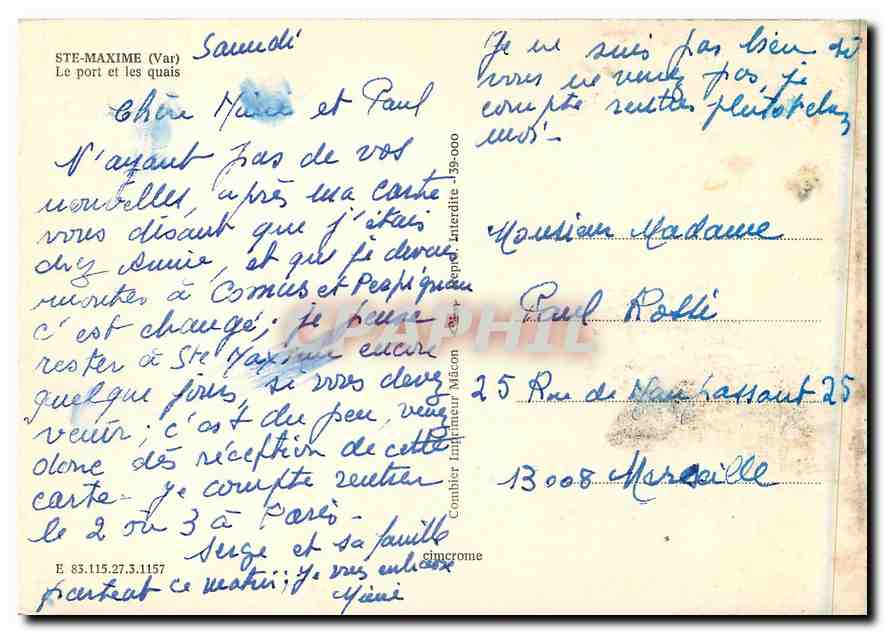 STE-MAXIME (Var)
Le port et les quais
Samedi
Chère Mimi et Paul
N'ayant pas de vos
nouvelles, après ma carte
vous disant que j'étais
chez Annie, et que je devais
monter à Comus et Perpignan
c'est changé; je pense
rester à Ste Maxime encore
quelque jours, si vous devez
venir; c'est du peu, venez
donc dès réception de cette
carte - je compte rentrer
le 2 ou 3 à Paris -
Serge et sa famille
partent ce matin; je vous embrasse
Mimi
E 83.115.27.3.1157
Combier Imprimeur Mâcon
Repro. Interdite - 39-000
cimcrome
CPAPHIL
Je ne suis pas bien si
vous ne venez pas, je
compte rentrer plutot chez
moi -
Monsieur Madame
Paul Rossi
25 Rue de Maupassant 25
13008 Marseille